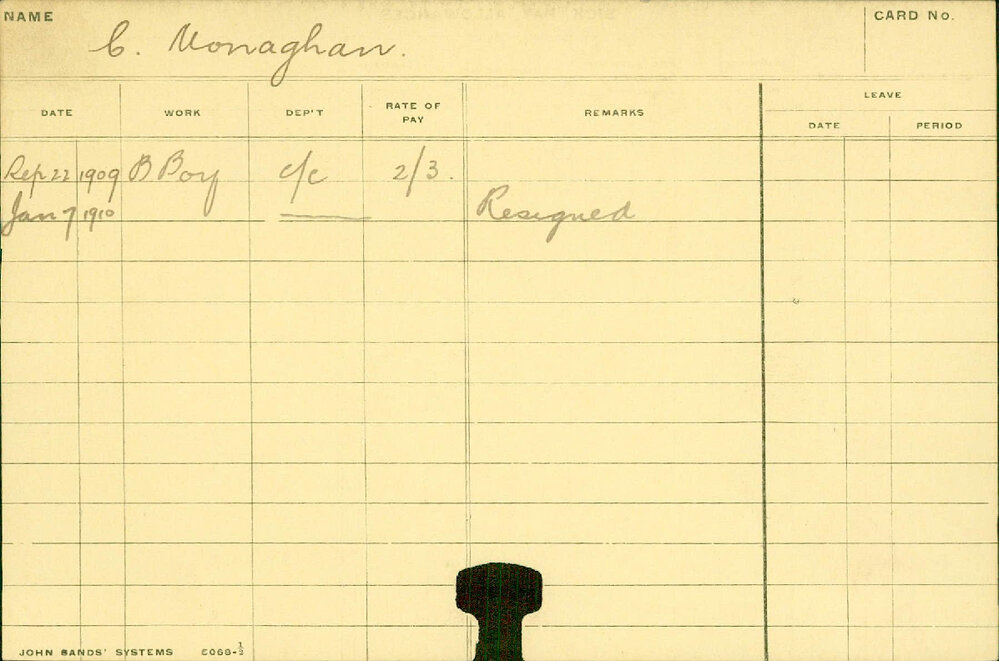 NAME
C. Monaghan.
CARD No.
DATE WORK DEP'T RATE OF PAY REMARKS LEAVE
DATE PERIOD
Sep 22 1909 B Boy c/c 2/3.
Jan 7 1910 Resigned
JOHN SANDS' SYSTEMS